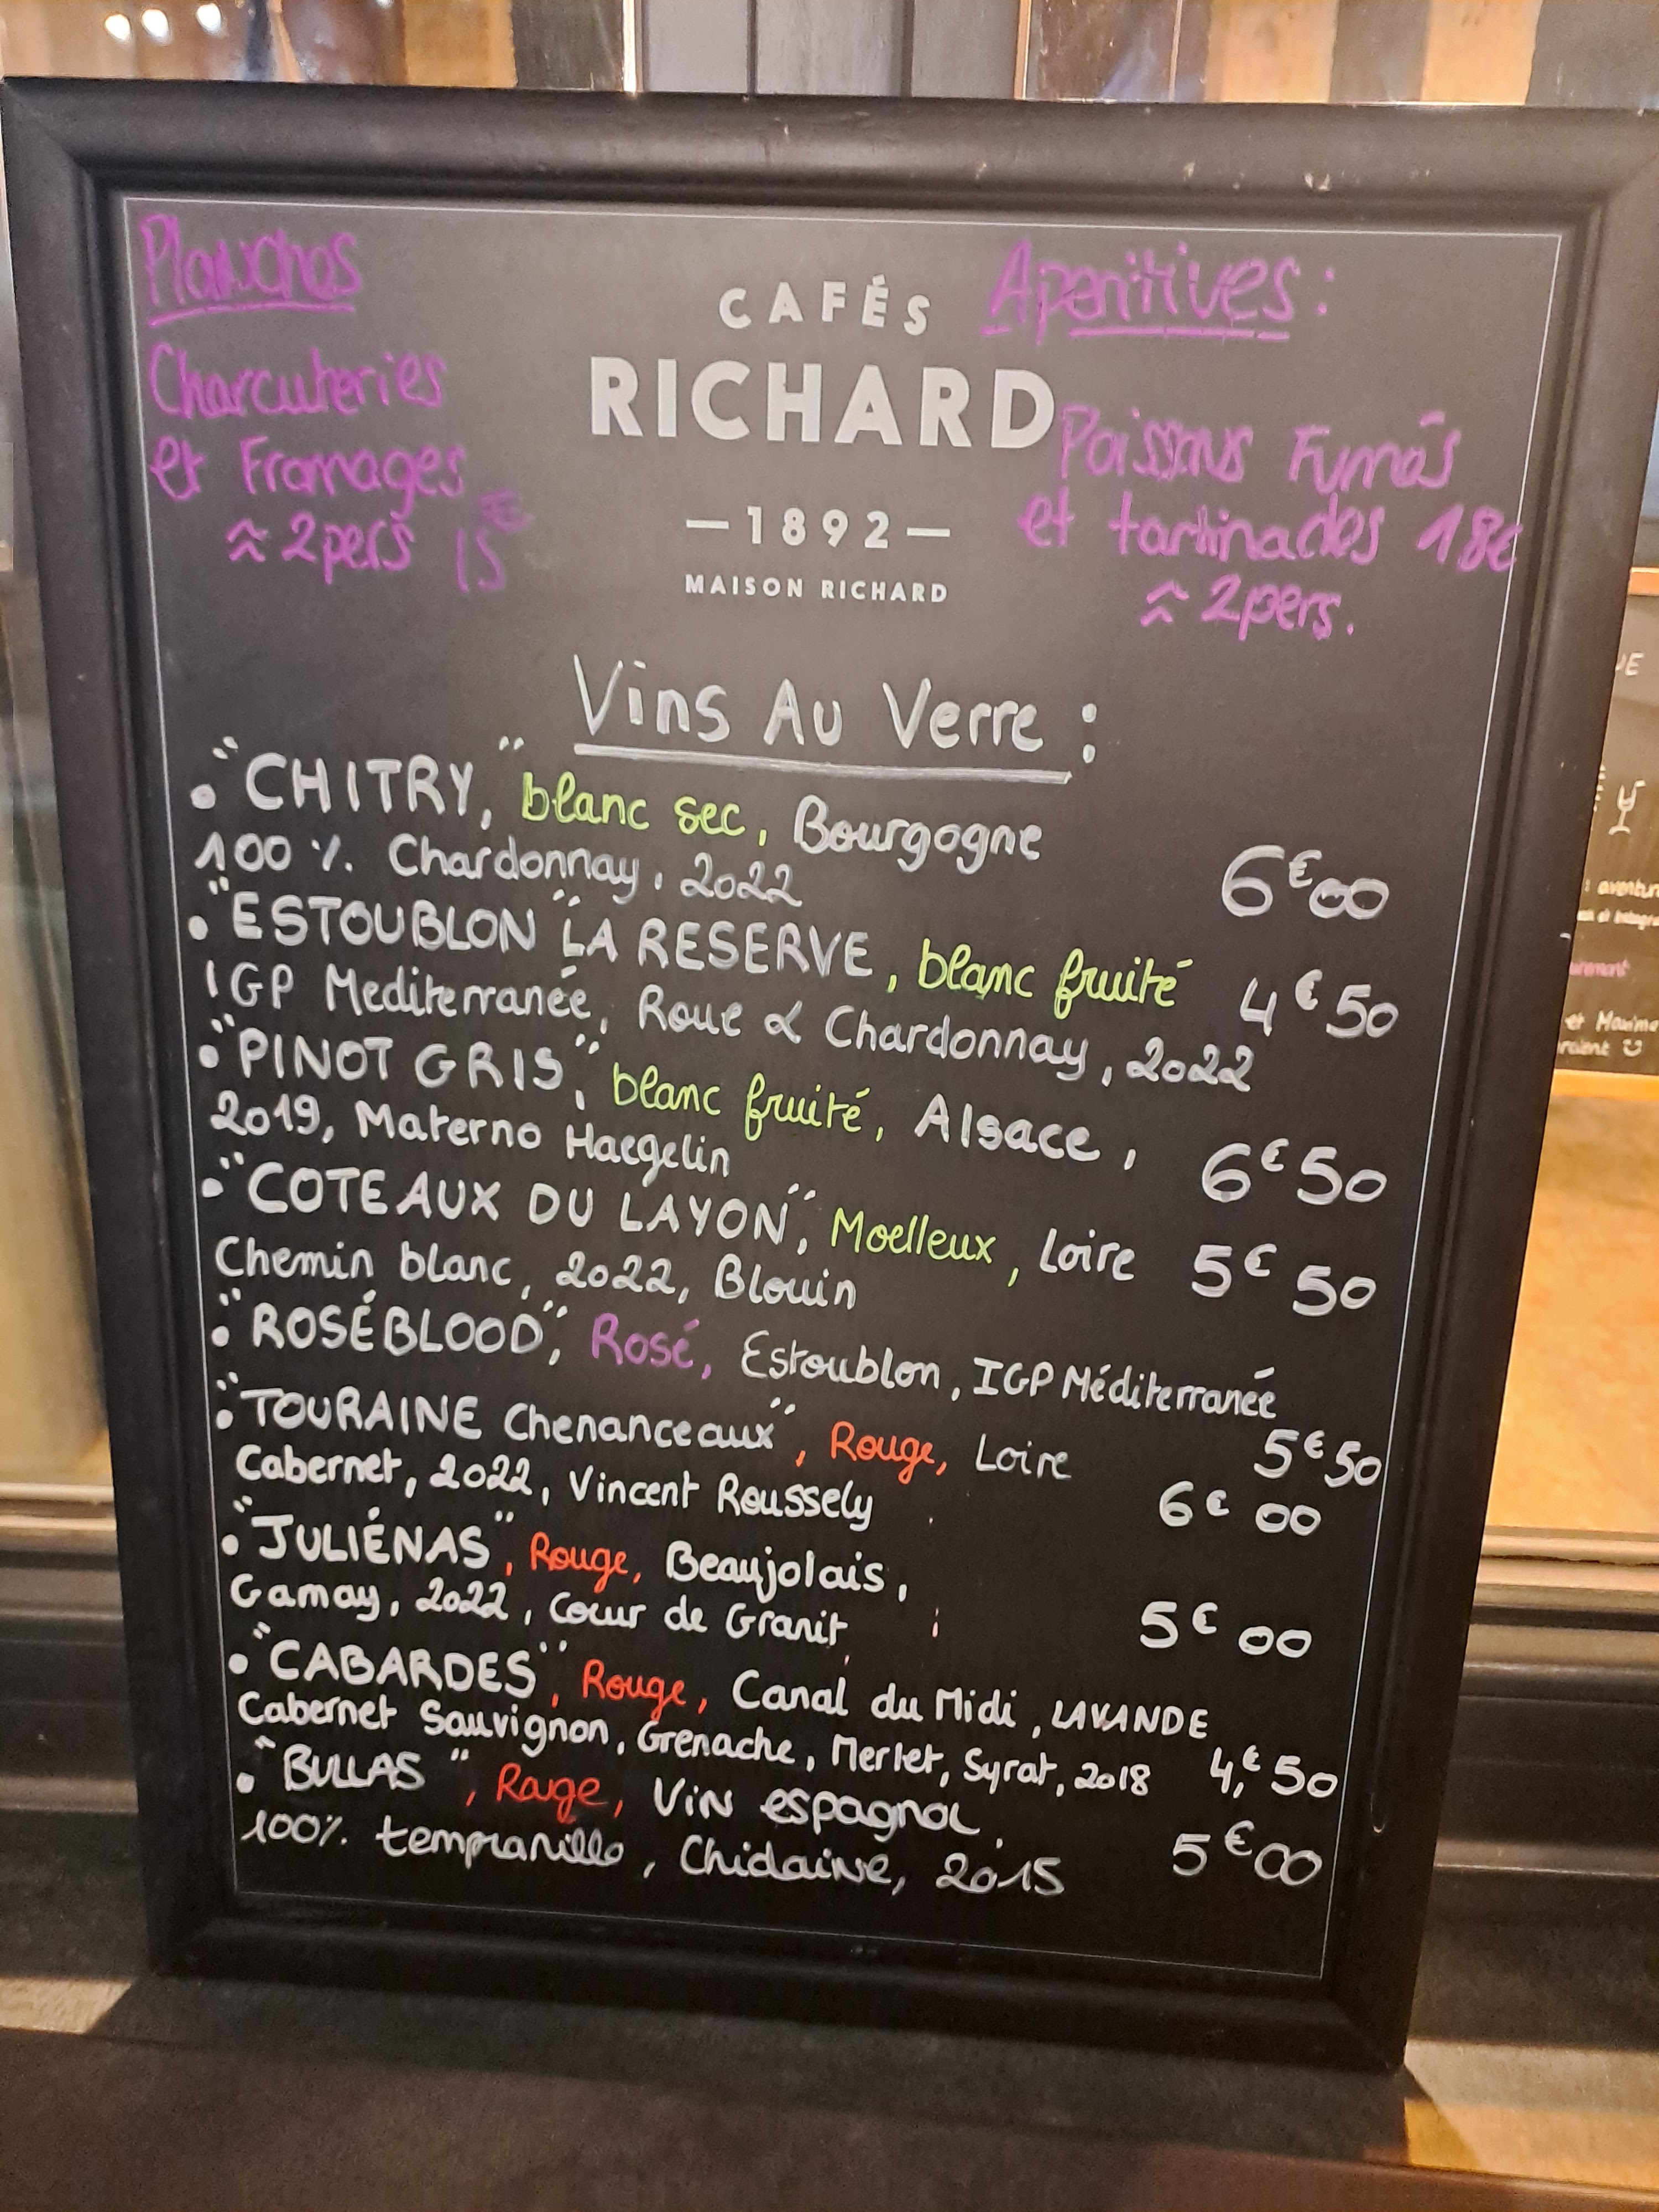 Planches
Apéritives :
CAFÉS
RICHARD
— 1892 —
MAISON RICHARD
Charcuteries
et Fromages
≈ 2pers 15€
Poissons Fumés
et tartinades 18€
≈ 2pers.
Vins Au Verre :
• "CHITRY," blanc sec, Bourgogne
100 % Chardonnay, 2022 6€00
• "ESTOUBLON" LA RESERVE, blanc fruité 4€50
IGP Mediterranée, Roue & Chardonnay, 2022
• "PINOT GRIS", blanc fruité, Alsace, 6€50
2019, Materno Haegelin
• "COTEAUX DU LAYON", Moelleux, Loire 5€50
Chemin blanc, 2022, Blouin
• "ROSÉBLOOD", Rosé, Estoublon, IGP Méditerranée
5€50
• "TOURAINE Chenanceaux", Rouge, Loire
Cabernet, 2022, Vincent Roussely 6€00
• "JULIÉNAS", Rouge, Beaujolais,
Gamay, 2022, Cœur de Granit 5€00
• "CABARDES", Rouge, Canal du Midi, LAVANDE
Cabernet Sauvignon, Grenache, Merlet, Syrat, 2018 4,€50
• "BULLAS", Rouge, Vin espagnol.
100% tempranillo, Chidaine, 2015 5€00
et Maxime